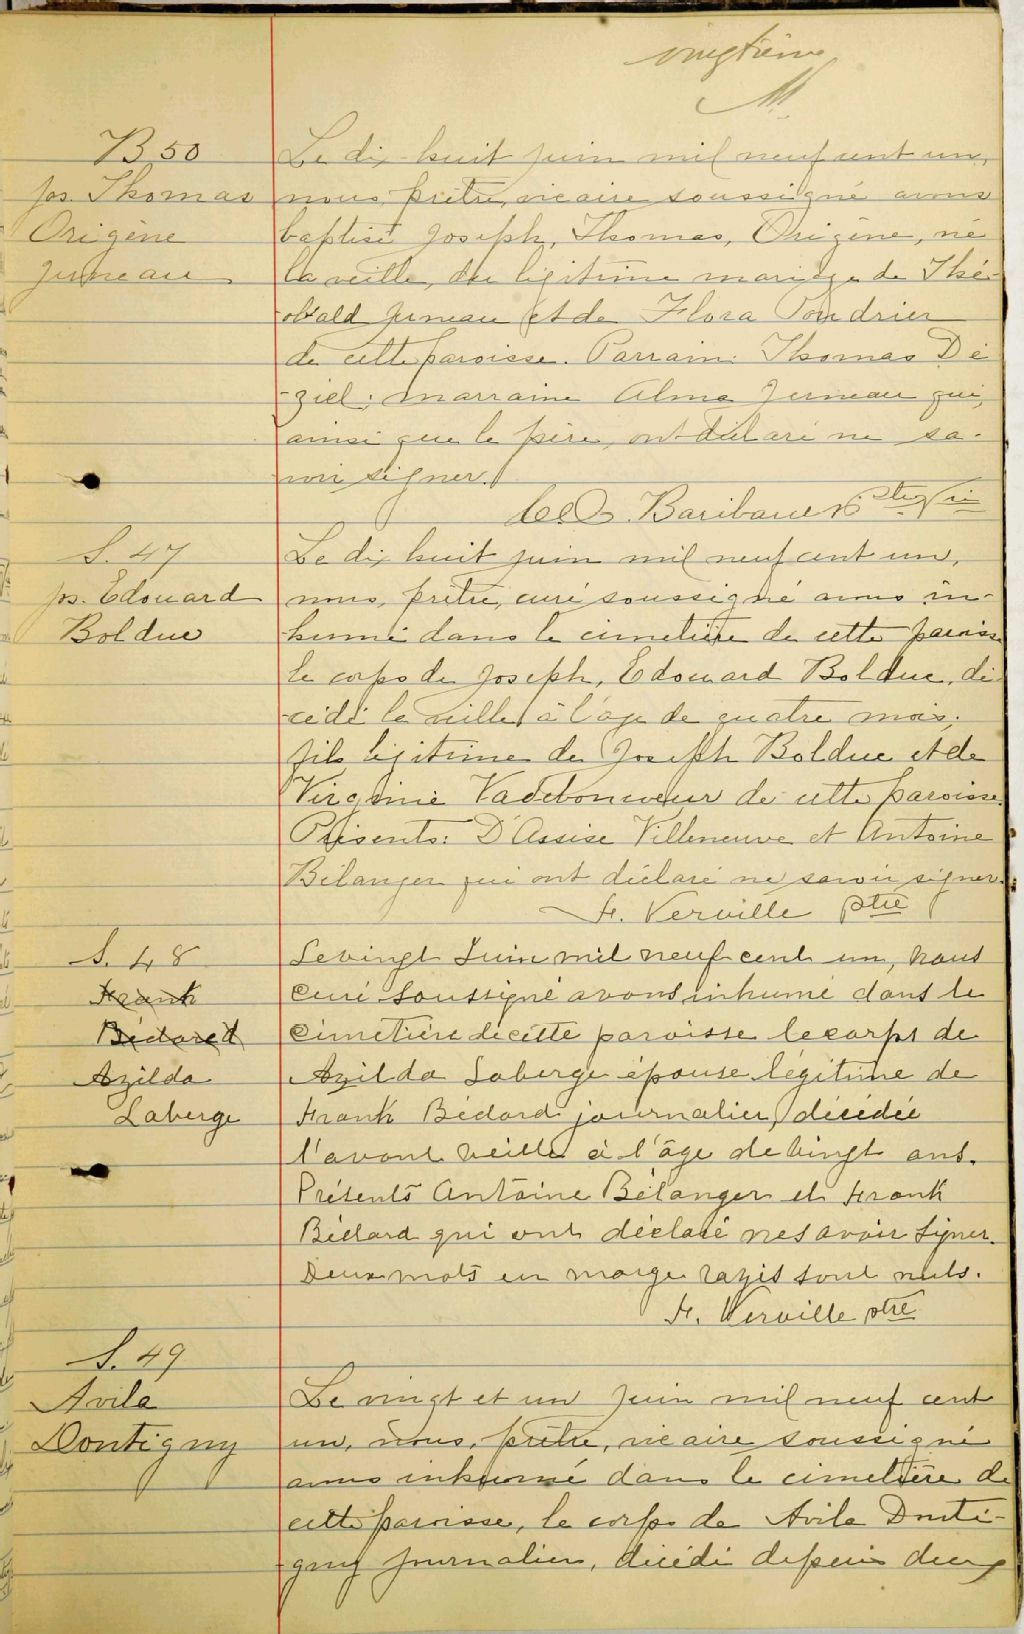 vingtième
B 50
Jos. Thomas
Origène
Juneau
Le dix-huit juin mil neuf cent un,
nous, prêtre, vicaire soussigné avons
baptisé Joseph, Thomas, Origène, né
la veille, du légitime mariage de Thé-
obald Juneau et de Flora Poudrier
de cette paroisse. Parrain: Thomas Dé
-ziel; marraine Alma Juneau qui,
ainsi que le père, ont déclaré ne sa-
voir signer.
Baribeau ptre Vic
S. 47
Jos. Edouard
Bolduc
Le dix huit juin mil neuf cent un,
nous, prêtre, curé soussigné avons in-
humé dans le cimetière de cette paroisse
le corps de Joseph, Edouard Bolduc, dé
-cédé la veille, à l'âge de quatre mois,
fils légitime de Joseph Bolduc et de
Virginie Vadeboncoeur de cette paroisse.
Présents: D'Assise Villeneuve et Antoine
Bélanger qui ont déclaré ne savoir signer.
F. Verville ptre
S. 48
Frank
Bédared
Azilda
Laberge
Le vingt Juin mil neuf cent un, nous
Curé soussigné avons inhumé dans le
Cimetière de cette paroisse le corps de
Azilda Laberge épouse légitime de
Frank Bédard journalier, décédée
l'avant veille à l'âge de vingt ans.
Présents Antoine Bélanger et Frank
Bédard qui ont déclaré ne savoir signer.
Deux mots en marge rayés sont nuls.
F. Verville ptre
S. 49
Avila
Dontigny
Le vingt et un juin mil neuf cent
un, nous, prêtre, vicaire soussigné
avons inhumé dans le cimetière de
cette paroisse, le corps de Avila Donti-
gny journalier, décédé depuis deux